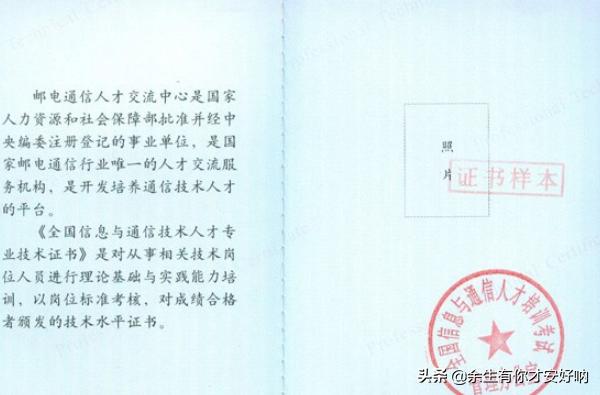 邮电通信人才交流中心是国家
人力资源和社会保障部批准并经中
央编委注册登记的事业单位，是国
家邮电通信行业唯一的人才交流服
务机构，是开发培养通信技术人才
的平台。
《全国信息与通信技术人才专
业技术证书》是对从事相关技术岗
位人员进行理论基础与实践能力培
训，以岗位标准考核，对成绩合格
者颁发的技术水平证书。
照
片
证书样本
全国信息与通信人才培训考试
管理办公室
头条 @余生有你才安好呐